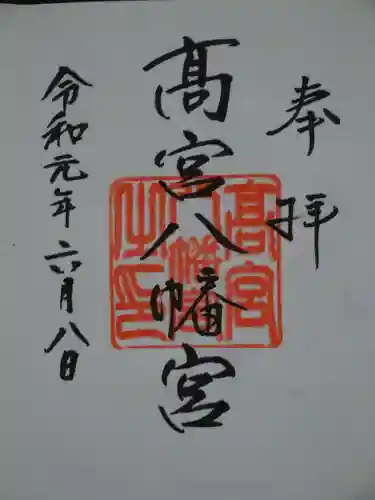 奉拝
髙宮八幡宮
令和元年六月八日
髙宮
八幡宮
之印